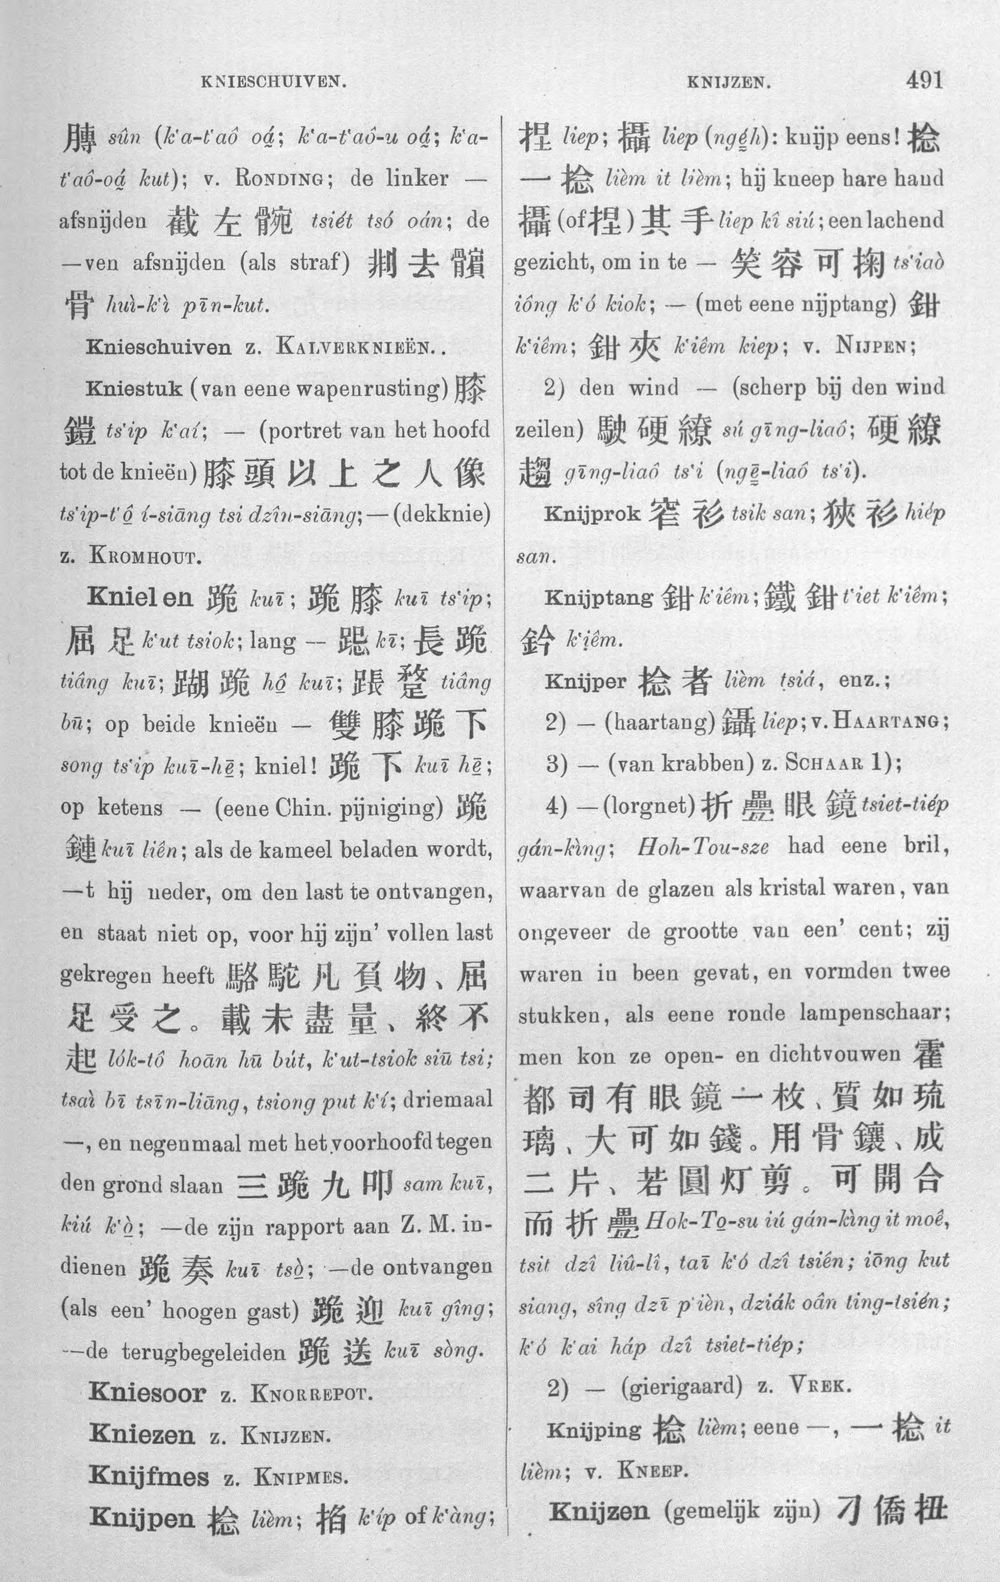 KNIESCHUIVEN.
KNIJZEN.
491
膞 sûn (k'a-t'aô oá̤; k'a-t'aô-u oá̤; k'a-
t'aô-oá̤ kut); v. RONDING; de linker —
afsnijden 截左䯛 tsiét tsó oán; de
—ven afsnijden (als straf) 刖去髕
骨 huì-k'ì pīn-kut.
Knieschuiven z. KALVERKNIEËN..
Kniestuk (van eene wapenrusting) 膝
鎧 ts'ip k'aí; — (portret van het hoofd
tot de knieën) 膝頭以上之人像
ts'ip-t'ô̤ í-siāng tsi dzîn-siāng; — (dekknie)
z. KROMHOUT.
Knielen 跪 kuī; 跪膝 kuī ts'ip;
屈足 k'ut tsiok; lang — 跽 kī; 長跪
tiâng kuī; 䠒跪 hô̤ kuī; 䠆蹩 tiâng
bū; op beide knieën — 雙膝跪下
song ts'ip kuī-hē̤; kniel! 跪下 kuī hē̤;
op ketens — (eene Chin. pijniging) 跪
鏈 kuī liên; als de kameel beladen wordt,
—t hij neder, om den last te ontvangen,
en staat niet op, voor hij zijn' vollen last
gekregen heeft 駱駝凡負物、屈
足受之。載未盡量、終不
起 lók-tô hoān hū bút, k'ut-tsiok siū tsi;
tsaì bī tsīn-liāng, tsiong put k'í; driemaal
—, en negenmaal met het voorhoofd tegen
den grond slaan 三跪九叩 sam kuī,
kiú k'ò̤; —de zijn rapport aan Z. M. in-
dienen 跪奏 kuī tsò̤; —de ontvangen
(als een' hoogen gast) 跪迎 kuī gîng;
—de terugbegeleiden 跪送 kuī sòng.
Kniesoor z. KNORREPOT.
Kniezen z. KNIJZEN.
Knijfmes z. KNIPMES.
Knijpen 捻 lièm; 掐 k'íp of k'àng;
捏 liep; 攝 liep (ngé̤h): knijp eens! 捻
一捻 lièm it lièm; hij kneep hare hand
攝 (of 捏) 其手 liep kî siú; een lachend
gezicht, om in te — 笑容可掬 ts'iaò
iông k'ó kiok; — (met eene nijptang) 鉗
k'iêm; 鉗夾 k'iêm kiep; v. NIJPEN;
2) den wind — (scherp bij den wind
zeilen) 駛硬繚 sú gīng-liaô; 硬繚
趨 gīng-liaô ts'i (ngē̤-liaô ts'i).
Knijprok 窄衫 tsik san; 狹衫 hiép
san.
Knijptang 鉗 k'iêm; 鐵鉗 t'iet k'iêm;
鈐 k'iêm.
Knijper 捻者 lièm tsiá, enz.;
2) — (haartang) 鑷 liep; v. HAARTANG;
3) — (van krabben) z. SCHAAR 1);
4) — (lorgnet) 折疊眼鏡 tsiet-tiép
gán-kìng; Hoh-Tou-sze had eene bril,
waarvan de glazen als kristal waren, van
ongeveer de grootte van een' cent; zij
waren in been gevat, en vormden twee
stukken, als eene ronde lampenschaar;
men kon ze open- en dichtvouwen 霍
都司有眼鏡一枚、質如琉
璃、大可如錢。用骨鑲、成
二片、若圓灯剪。可開合
而折疊 Hok-To̤-su iú gán-kìng it moê,
tsit dzî liû-lî, taī k'ó dzî tsiên; iōng kut
siang, sîng dzī p'ièn, dziák oân ting-tsién;
k'ó k'ai háp dzî tsiet-tiép;
2) — (gierigaard) z. VREK.
Knijping 捻 lièm; eene —, 一捻 it
lièm; v. KNEEP.
Knijzen (gemelijk zijn) 刁僑扭